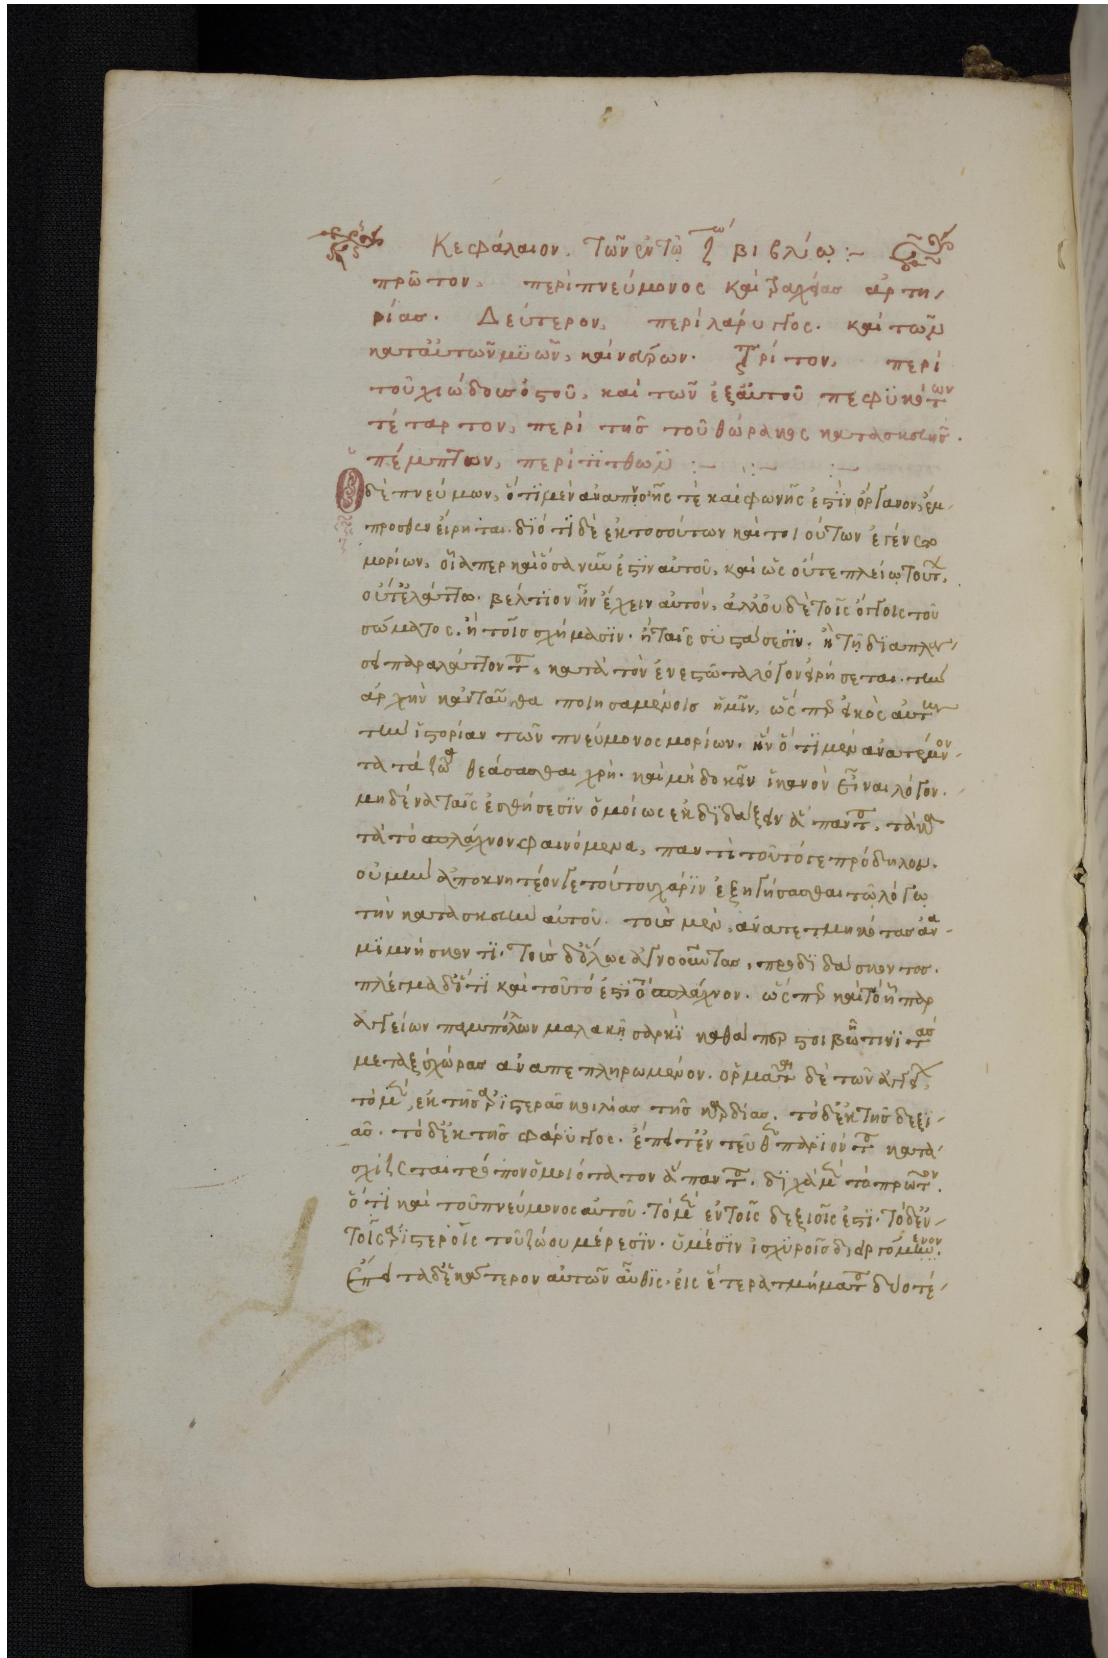 Κεφάλαιον. τῶν ἐν τῷ ζ^ω βιβλίῳ :~
πρῶτον, περὶ πνεύμονος καὶ τραχείας ἀρτη-
ρίας. Δεύτερον, περὶ λάρυγγος. καὶ τῶν
κατ αὐτῶν μϋῶν, καὶ νεύρων. Τρίτον, περὶ
τοῦ χιώδους ὀστοῦ, καὶ τῶν ἐξ αὐτοῦ πεφϋκότων
τέταρτον, περὶ τῆς τοῦ θώρακος κατασκευῆς.
πέμπτον, περὶ τϊτθῶν :~ .:~ :~
Ὁ δὲ πνεύμων, ὅτϊ μὲν ἀναπνοῆς τὲ καὶ φωνῆς ἐστὶν ὄργανον, ἔμ-
προσθεν εἴρηται. δϊότϊ δὲ ἐκ τοσούτων καὶ τοιούτων ἐγένετο
μορίων, οἷα περ καὶ ὅσα νῦν ἐστϊν αὐτοῦ, καὶ ὡς οὔτε πλείω τούτων,
οὔτ' ἐλάττω. βέλτϊον ἦν ἔχειν αὐτόν, ἀλλ' οὐδὲ τοῖς ὄγκοις τοῦ
σώματος. ἢ τοῖς σχήμασϊν. ἢ ταῖς σϋστάσεσϊν. ἢ τῇ δϊαπλά-
σει παραλάττοντα, κατὰ τὸν ἐνεστῶτα λόγον εἰρήσεται. τὴν
ἀρχὴν κἀνταῦθα ποιησαμένοις ἡμῖν, ὥς περ εἰκὸς αὐτὴν
τὴν ἱστορίαν τῶν πνεύμονος μορίων. ἣν ὅτϊ μὲν ἀνατέμνον-
τα τὰ ζῶα θεάσασθαι χρή. καὶ μὴ δοκεῖν ἱκανὸν εἶναι λόγον.
μηδένα ταῖς ἐσθήσεσϊν ὁμοίως ἐκδϊδάξειν ἅπαντα, τὰ κα-
τὰ τὸ σπλάχνον φαινόμενα, παντὶ τοῦτό γε πρόδηλον.
οὐ μὴν ἀποκνητέον γε τούτου χάρϊν ἐξηγήσασθαι τῷ λόγῳ
τὴν κατασκευὴν αὐτοῦ. τοὺς μὲν, ἀνατετμηκότας ἀνα-
μϊμνήσκοντϊ. τοὺς δ' ὅλως ἀγνοοῦντας, προδϊδάσκοντος.
πλέγμα δ' ὅτϊ καὶ τοῦτό ἐστϊ τὸ σπλάχνον. ὥς περ καὶ τὸ ἧπαρ
ἀγγείων παμπόλλων μαλακῇ σαρκὶ καθά περ στοιβῇ τινϊ τὰς
μεταξὺ χώρας ἀναπεπληρωμένον. ὁρμᾶται δὲ τῶν ἀγγείων,
τὸ μὲν, ἐκ τῆς ἀρϊστερᾶς κοιλίας τῆς καρδίας. τὸ δ' ἐκ τῆς δεξι-
ᾶς. τὸ δ' ἐκ τῆς φάρυγγος. ἔπειτ' ἐντεῦθεν παριόντα κατα-
σχίζεται τρόπον ὁμοιότατον ἅπαντα. δϊχὰ μὲν τὸ πρῶτον.
ὅτϊ καὶ τοῦ πνεύμονος αὐτοῦ. τὸ μὲν ἐν τοῖς δεξιοῖς ἐστϊ. τὸ δ' ἐν-
τοῖς ἀρϊστεροῖς τοῦ ζώου μέρεσϊν. ὑμέσϊν ἰσχϋροῖς διειργόμενον.
Ἔπειτα δ' ἑκάτερον αὐτῶν αὖθϊς. εἰς ἕτερα τμήματα δύο τέ-